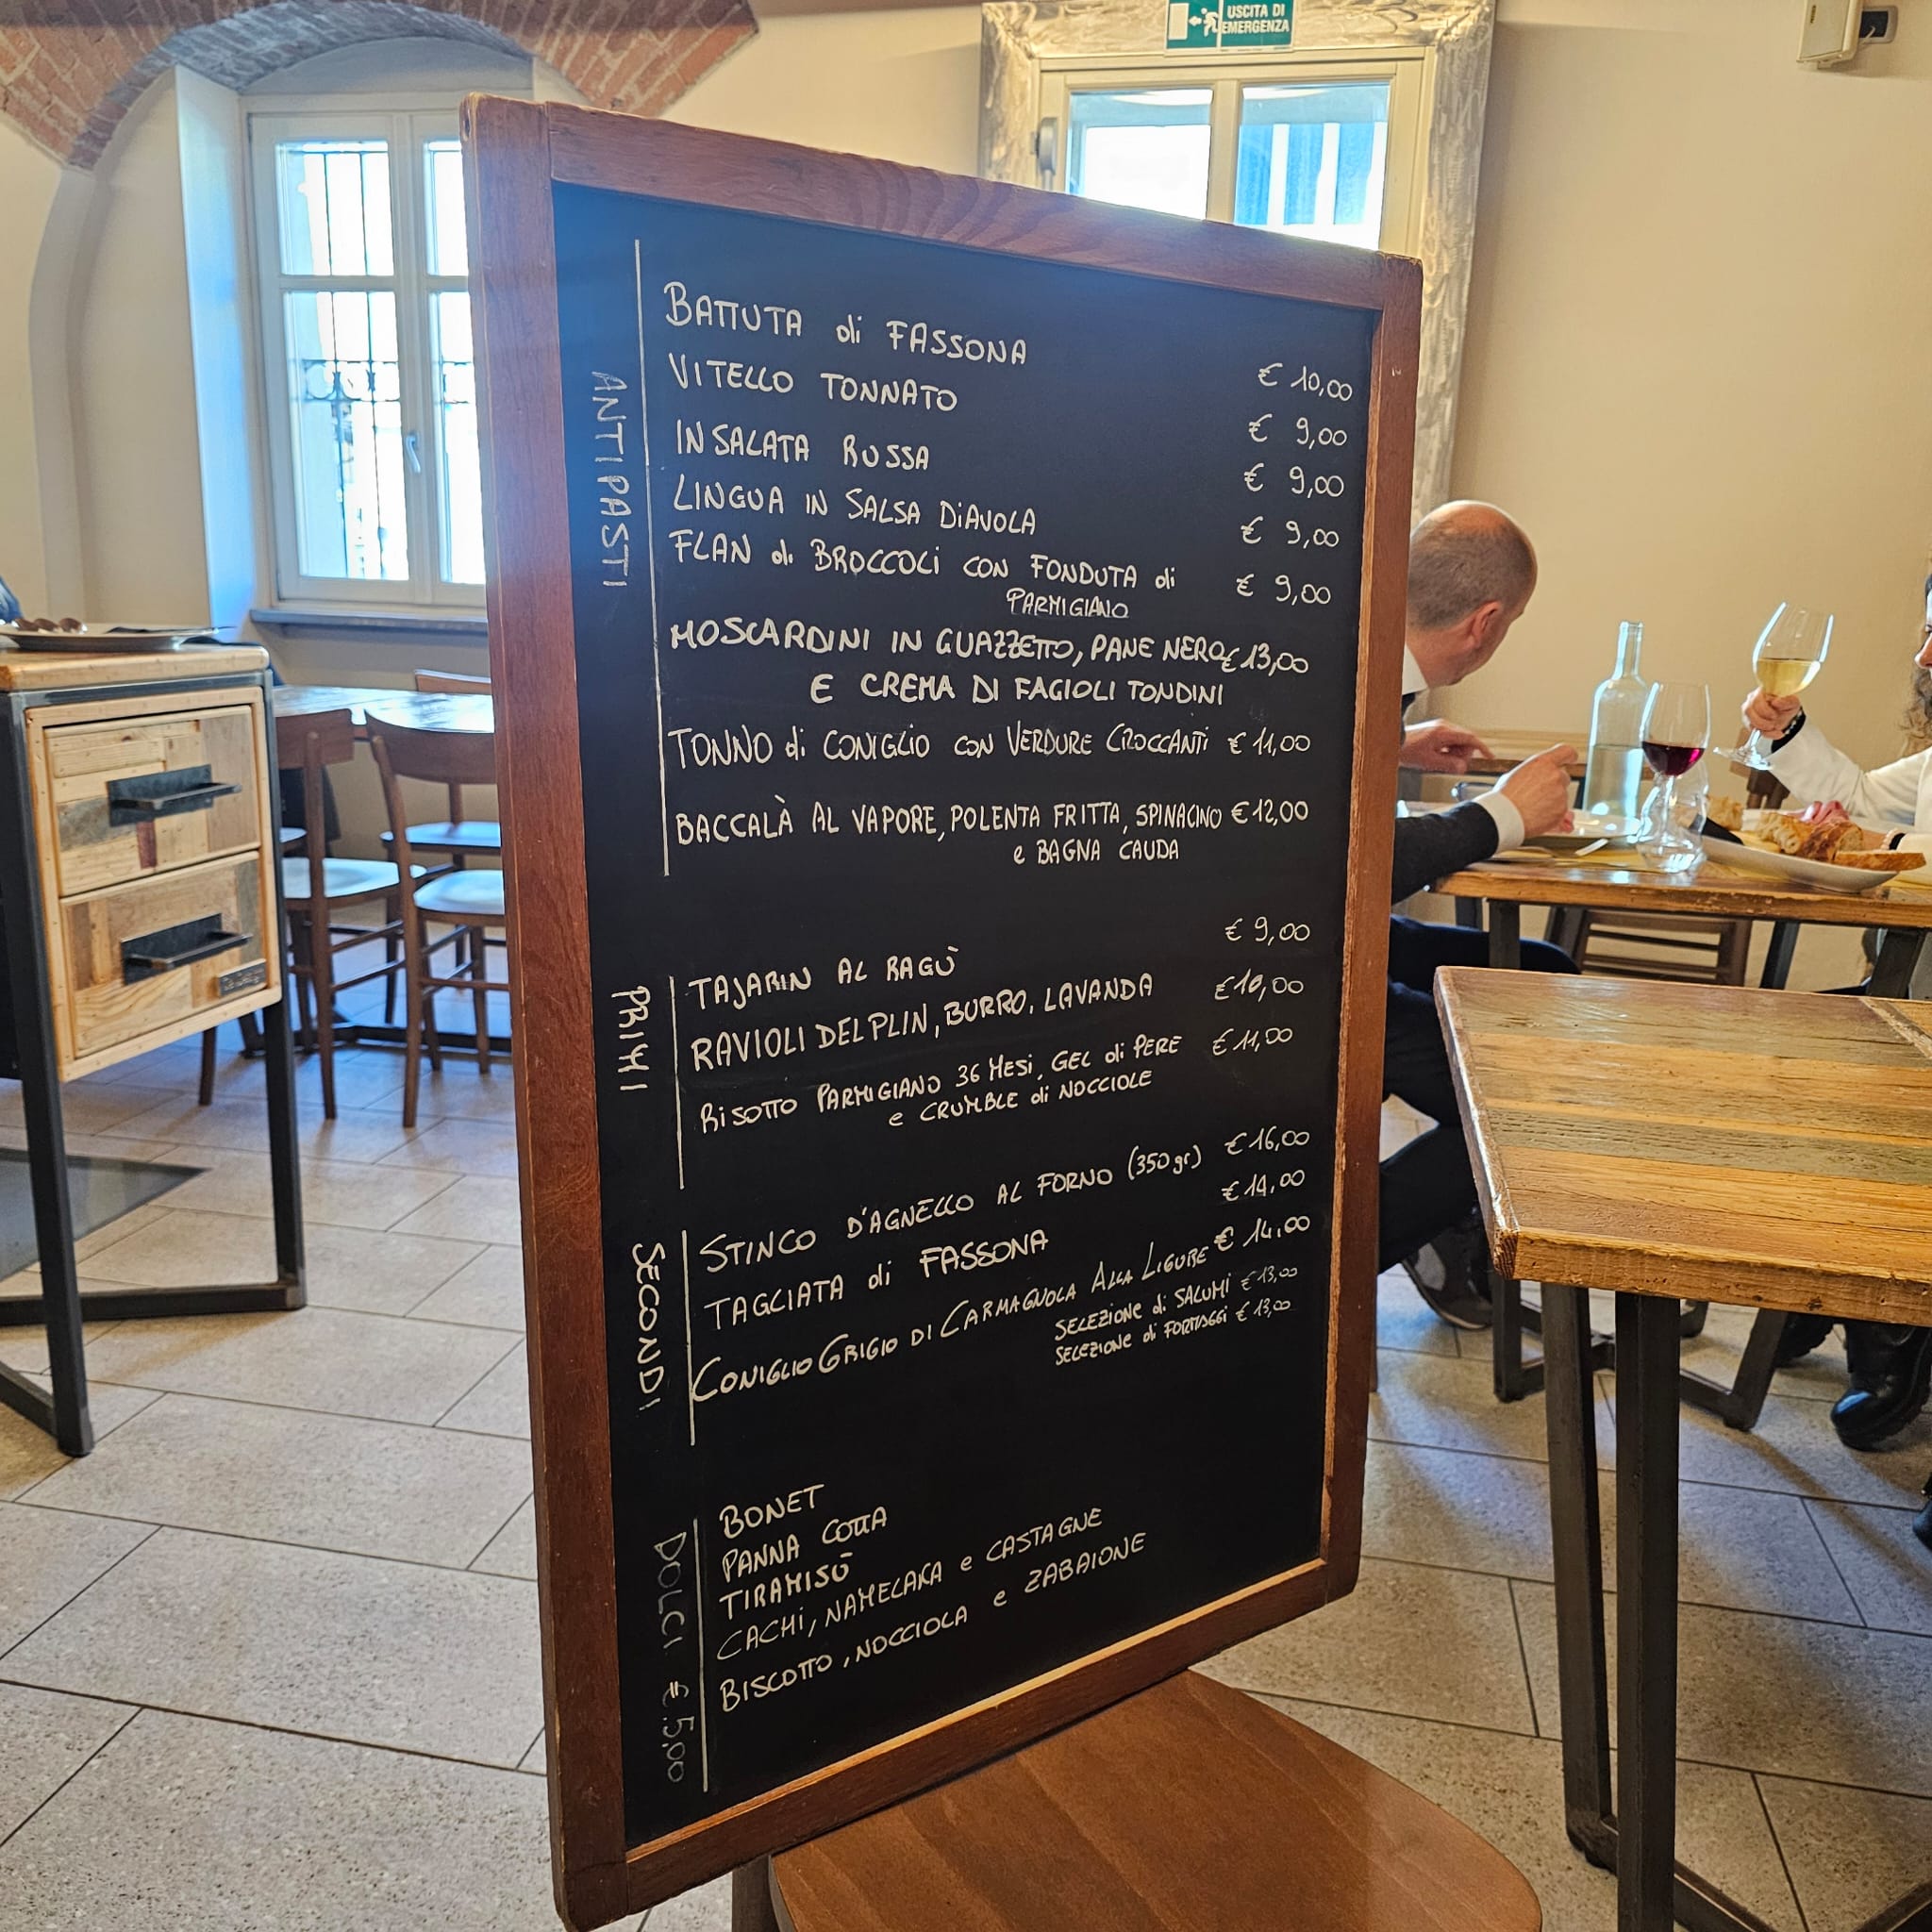 USCITA DI
EMERGENZA
ANTIPASTI
BATTUTA di FASSONA € 10,00
VITELLO TONNATO € 9,00
INSALATA RUSSA € 9,00
LINGUA IN SALSA DiAVOLA € 9,00
FLAN di BROCCOLi CON FONDUTA di € 9,00
PARMIGIANO
MOSCARDINI IN GUAZZETTO, PANE NERO € 13,00
E CREMA DI FAGIOLI TONDINI
TONNO di CONIGLIO CON VERDURE CROCCANTi € 11,00
BACCALÀ AL VAPORE, POLENTA FRITTA, SPINACINO € 12,00
e BAGNA CAUDA
PRIMI
TAJARIN AL RAGÙ € 9,00
RAVIOLI DEL PLIN, BURRO, LAVANDA € 10,00
RiSOTTO PARMIGIANO 36 MESi, GEL di PERE € 11,00
e CRUMBLE di NOCCIOLE
SECONDI
STINCO D'AGNELLO AL FORNO (350 gr) € 16,00
TAGLIATA di FASSONA € 14,00
CONIGLIO GRIGIO DI CARMAGNOLA ALLA LIGURE € 14,00
SELEZIONE di SALUMI € 13,00
SELEZIONE di FORMAGGI € 13,00
DOLCI € 5,00
BONET
PANNA COTTA
TIRAMISÙ
CACHi, NAMELAKA e CASTAGNE
BISCOTTO, NOCCIOLA e ZABAIONE